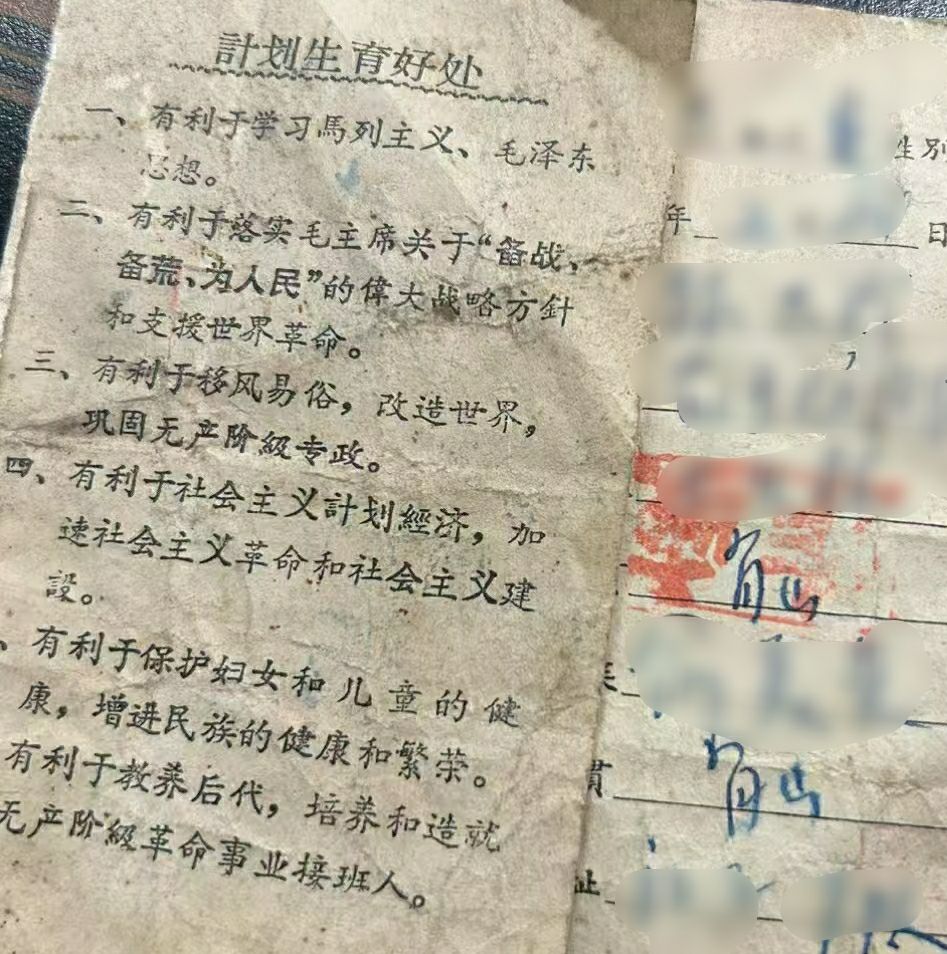 計划生育好处
一、有利于学习馬列主义、毛泽东
思想。
二、有利于落实毛主席关于“备战、
备荒、为人民”的偉大战略方針
和支援世界革命。
三、有利于移风易俗，改造世界，
巩固无产阶級专政。
四、有利于社会主义計划經济，加
速社会主义革命和社会主义建
設。
、有利于保护妇女和儿童的健
康，增进民族的健康和繁荣。
有利于教养后代，培养和造就
无产阶級革命事业接班人。
性別
年 日
貫
址